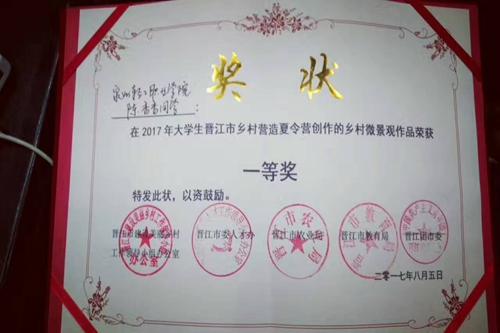 奖 状
泉州轻工职业学院
陈香香同学:
在2017年大学生晋江市乡村营造夏令营创作的乡村微景观作品荣获
一等奖
特发此状,以资鼓励。
晋江市 美丽乡村 晋江市委人才办 晋江市农业局 晋江市教育局 晋江团市委
工作领导小组办公室
二〇一七年八月五日